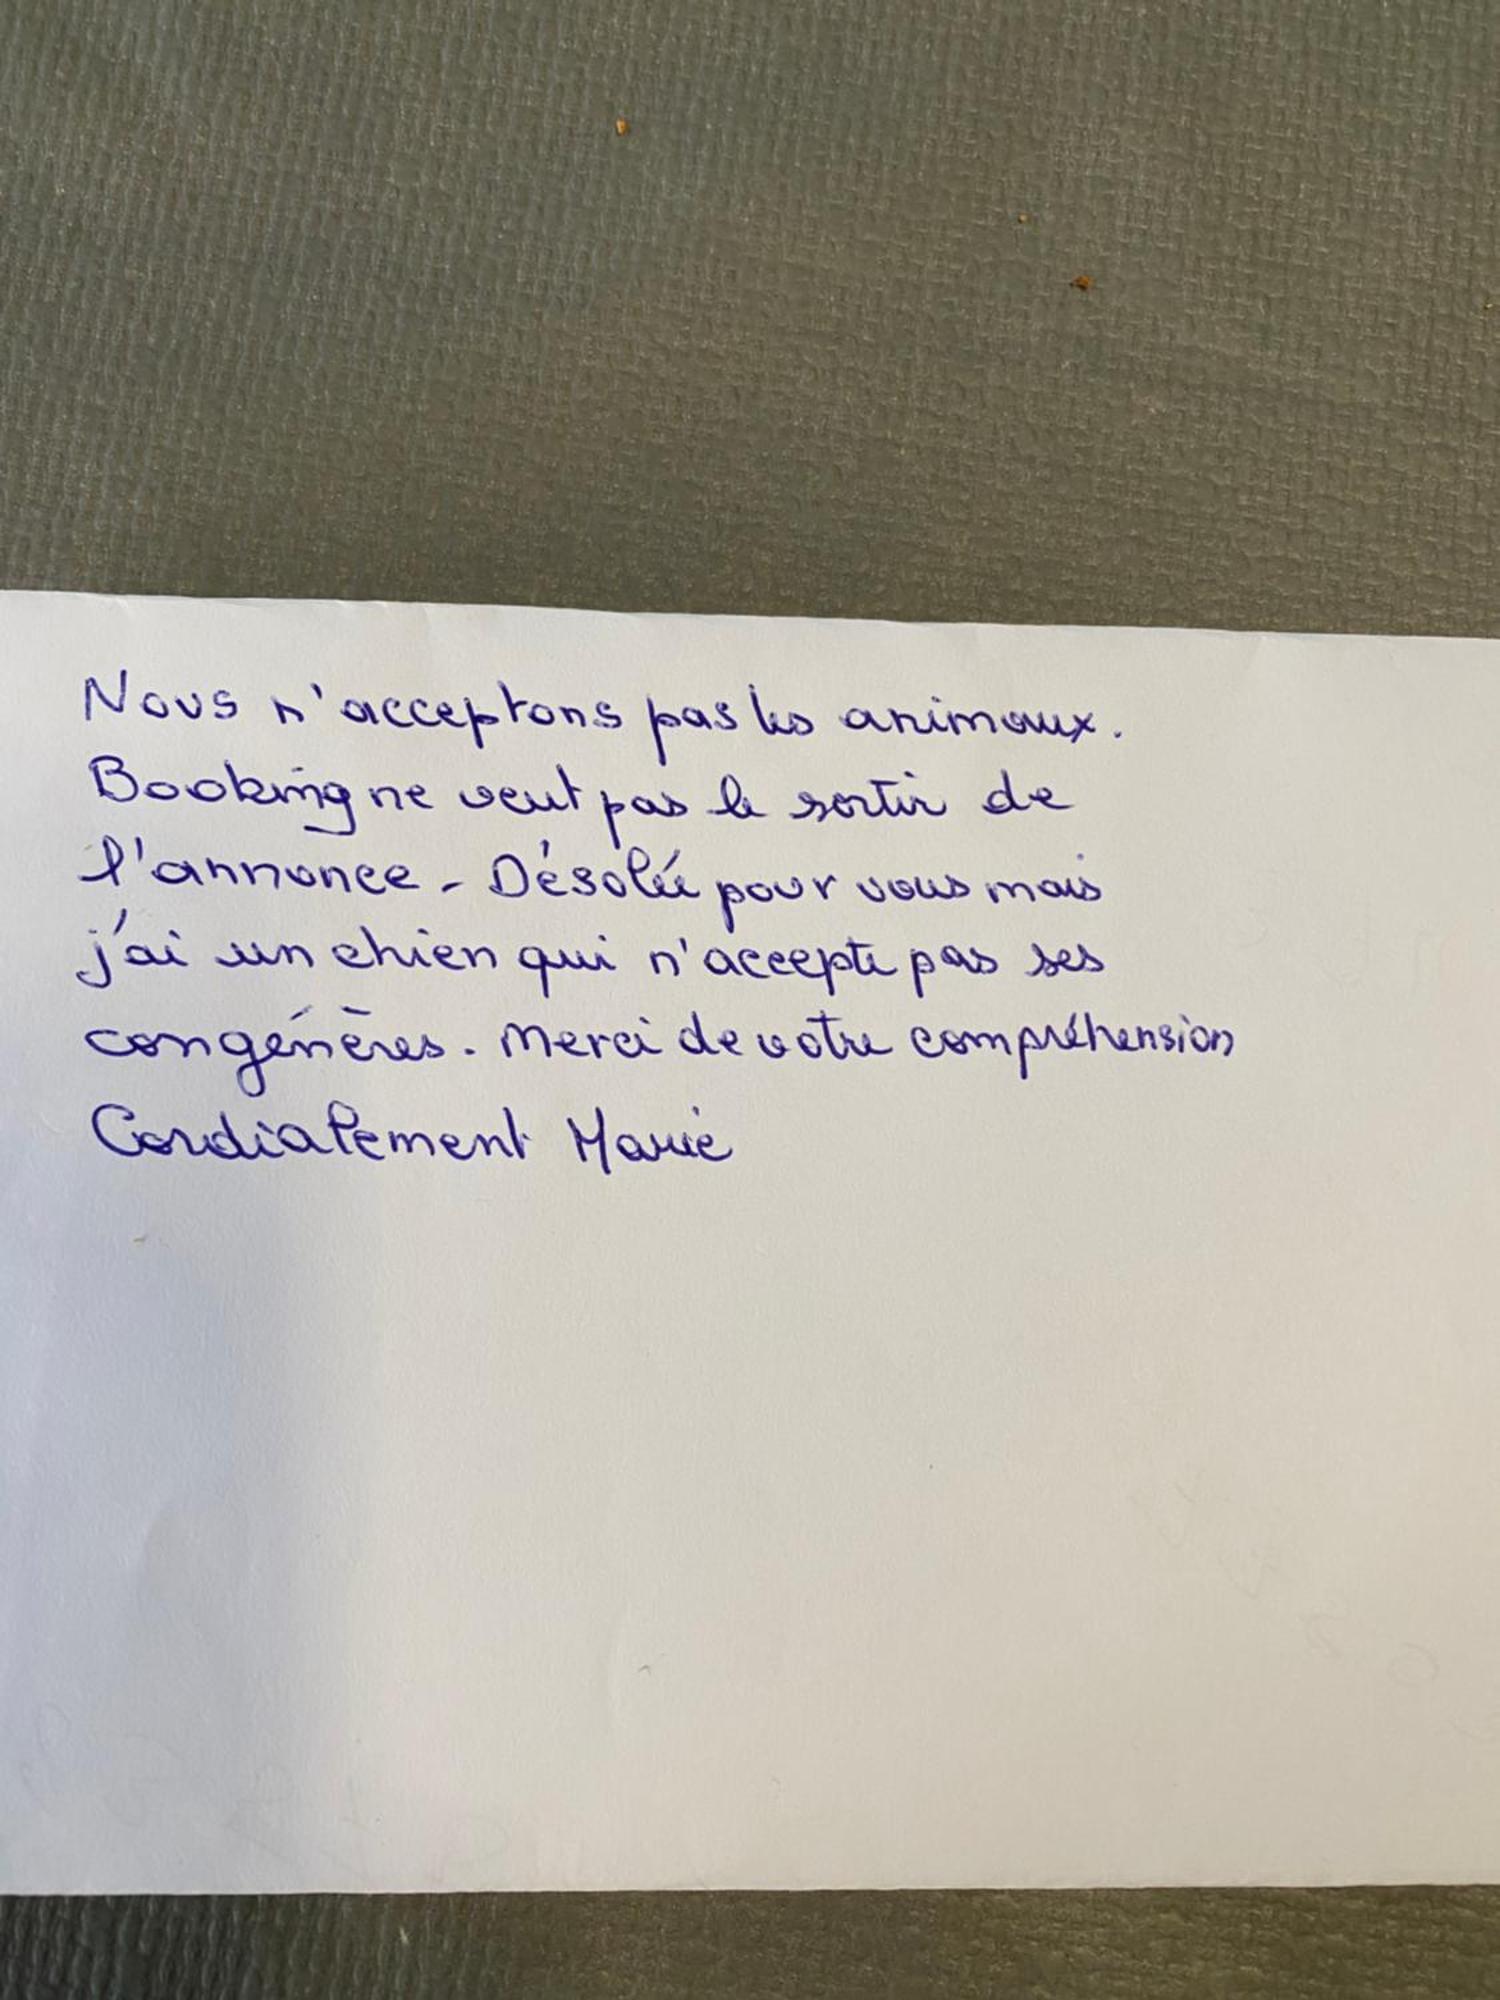 Nous n'acceptons pas les animaux.
Booking ne veut pas le sortir de
l'annonce - Désolée pour vous mais
j'ai un chien qui n'accepte pas ses
congénères. Merci de votre compréhension
Cordialement Marie